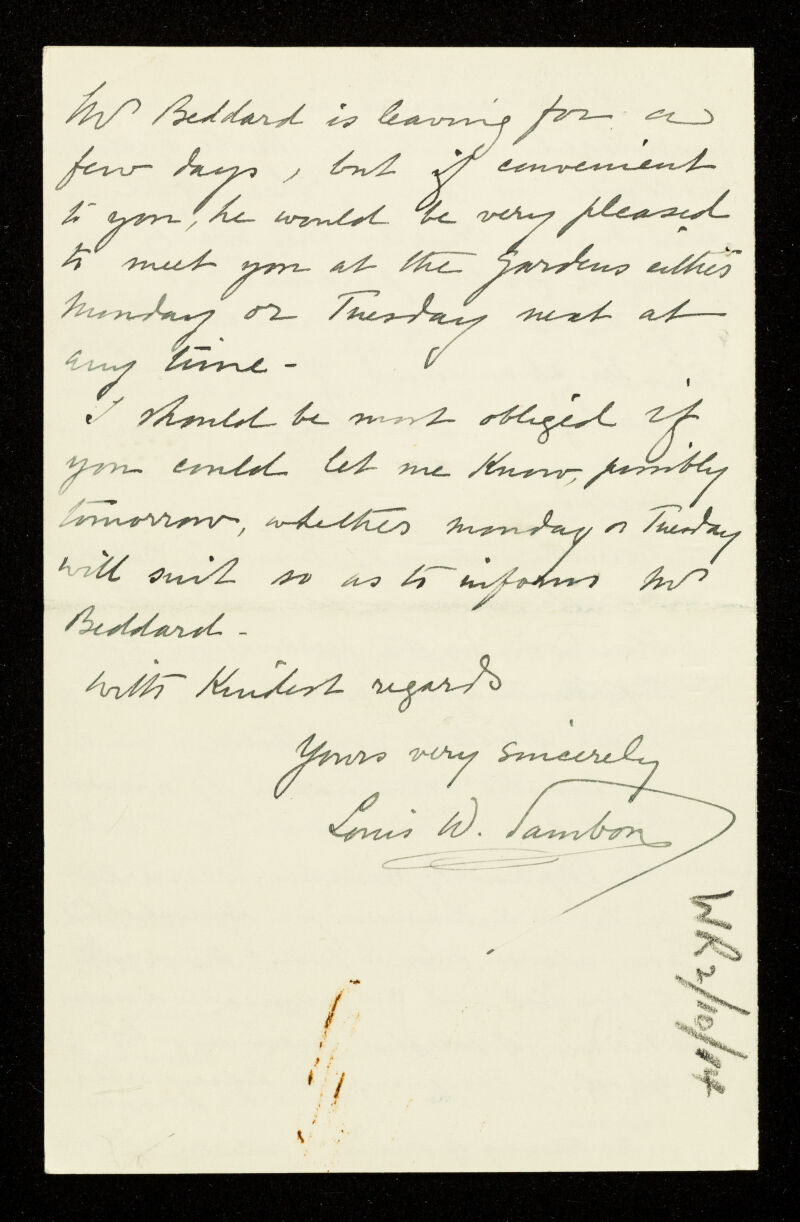 Mr Beddard is leaving for a
few days, but if convenient
to you, he would be very pleased
to meet you at the Gardens either
Monday or Tuesday next at
any time -
I should be most obliged if
you could let me Know, possibly
tomorrow, whether monday or Tuesday
will suit so as to inform Mr
Beddard -
with Kindest regards
Yours very sincerely
Louis W. Sambon
WR 2/10/